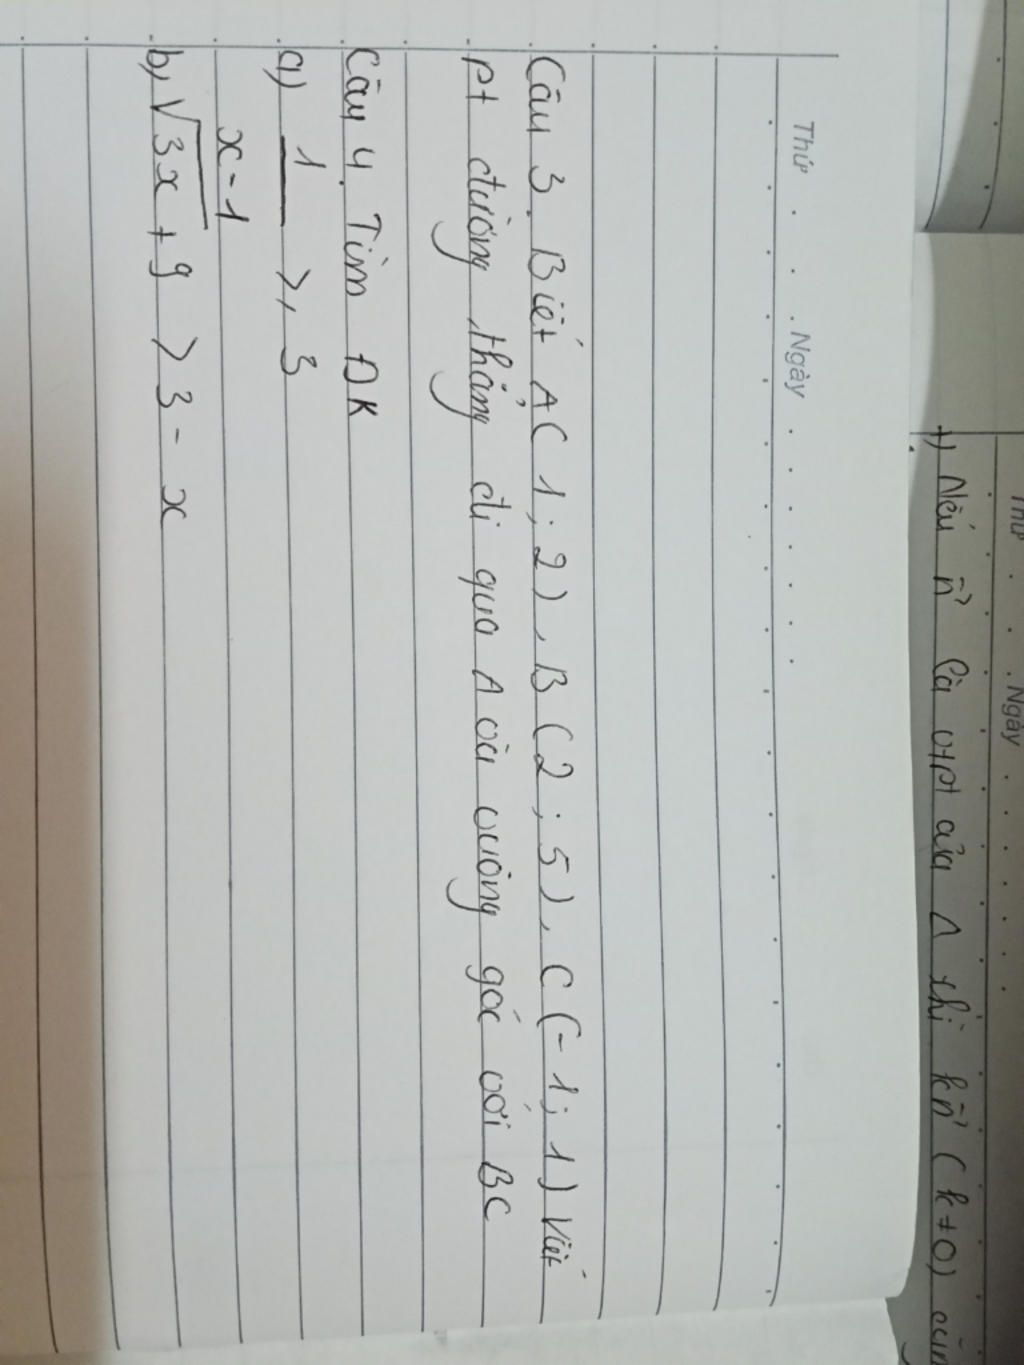 Thứ . . . Ngày . . . . . .
Câu 3. Biết A(1; 2), B(2; 5), C(-1; 1) Viết
pt đường thẳng đi qua A và vuông góc với BC
Câu 4. Tìm ĐK
a) 1/(x-1) ⩾ 3
b) √3x + 9 > 3 - x
Thứ . . . Ngày . . . . . .
+) Nếu n⃗ là vtpt của Δ thì kn⃗ (k≠0) cũng